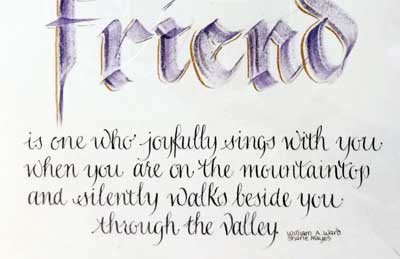 friend
is one who joyfully sings with you
when you are on the mountaintop
and silently walks beside you
through the valley
William A. Ward
Sharie Mayes